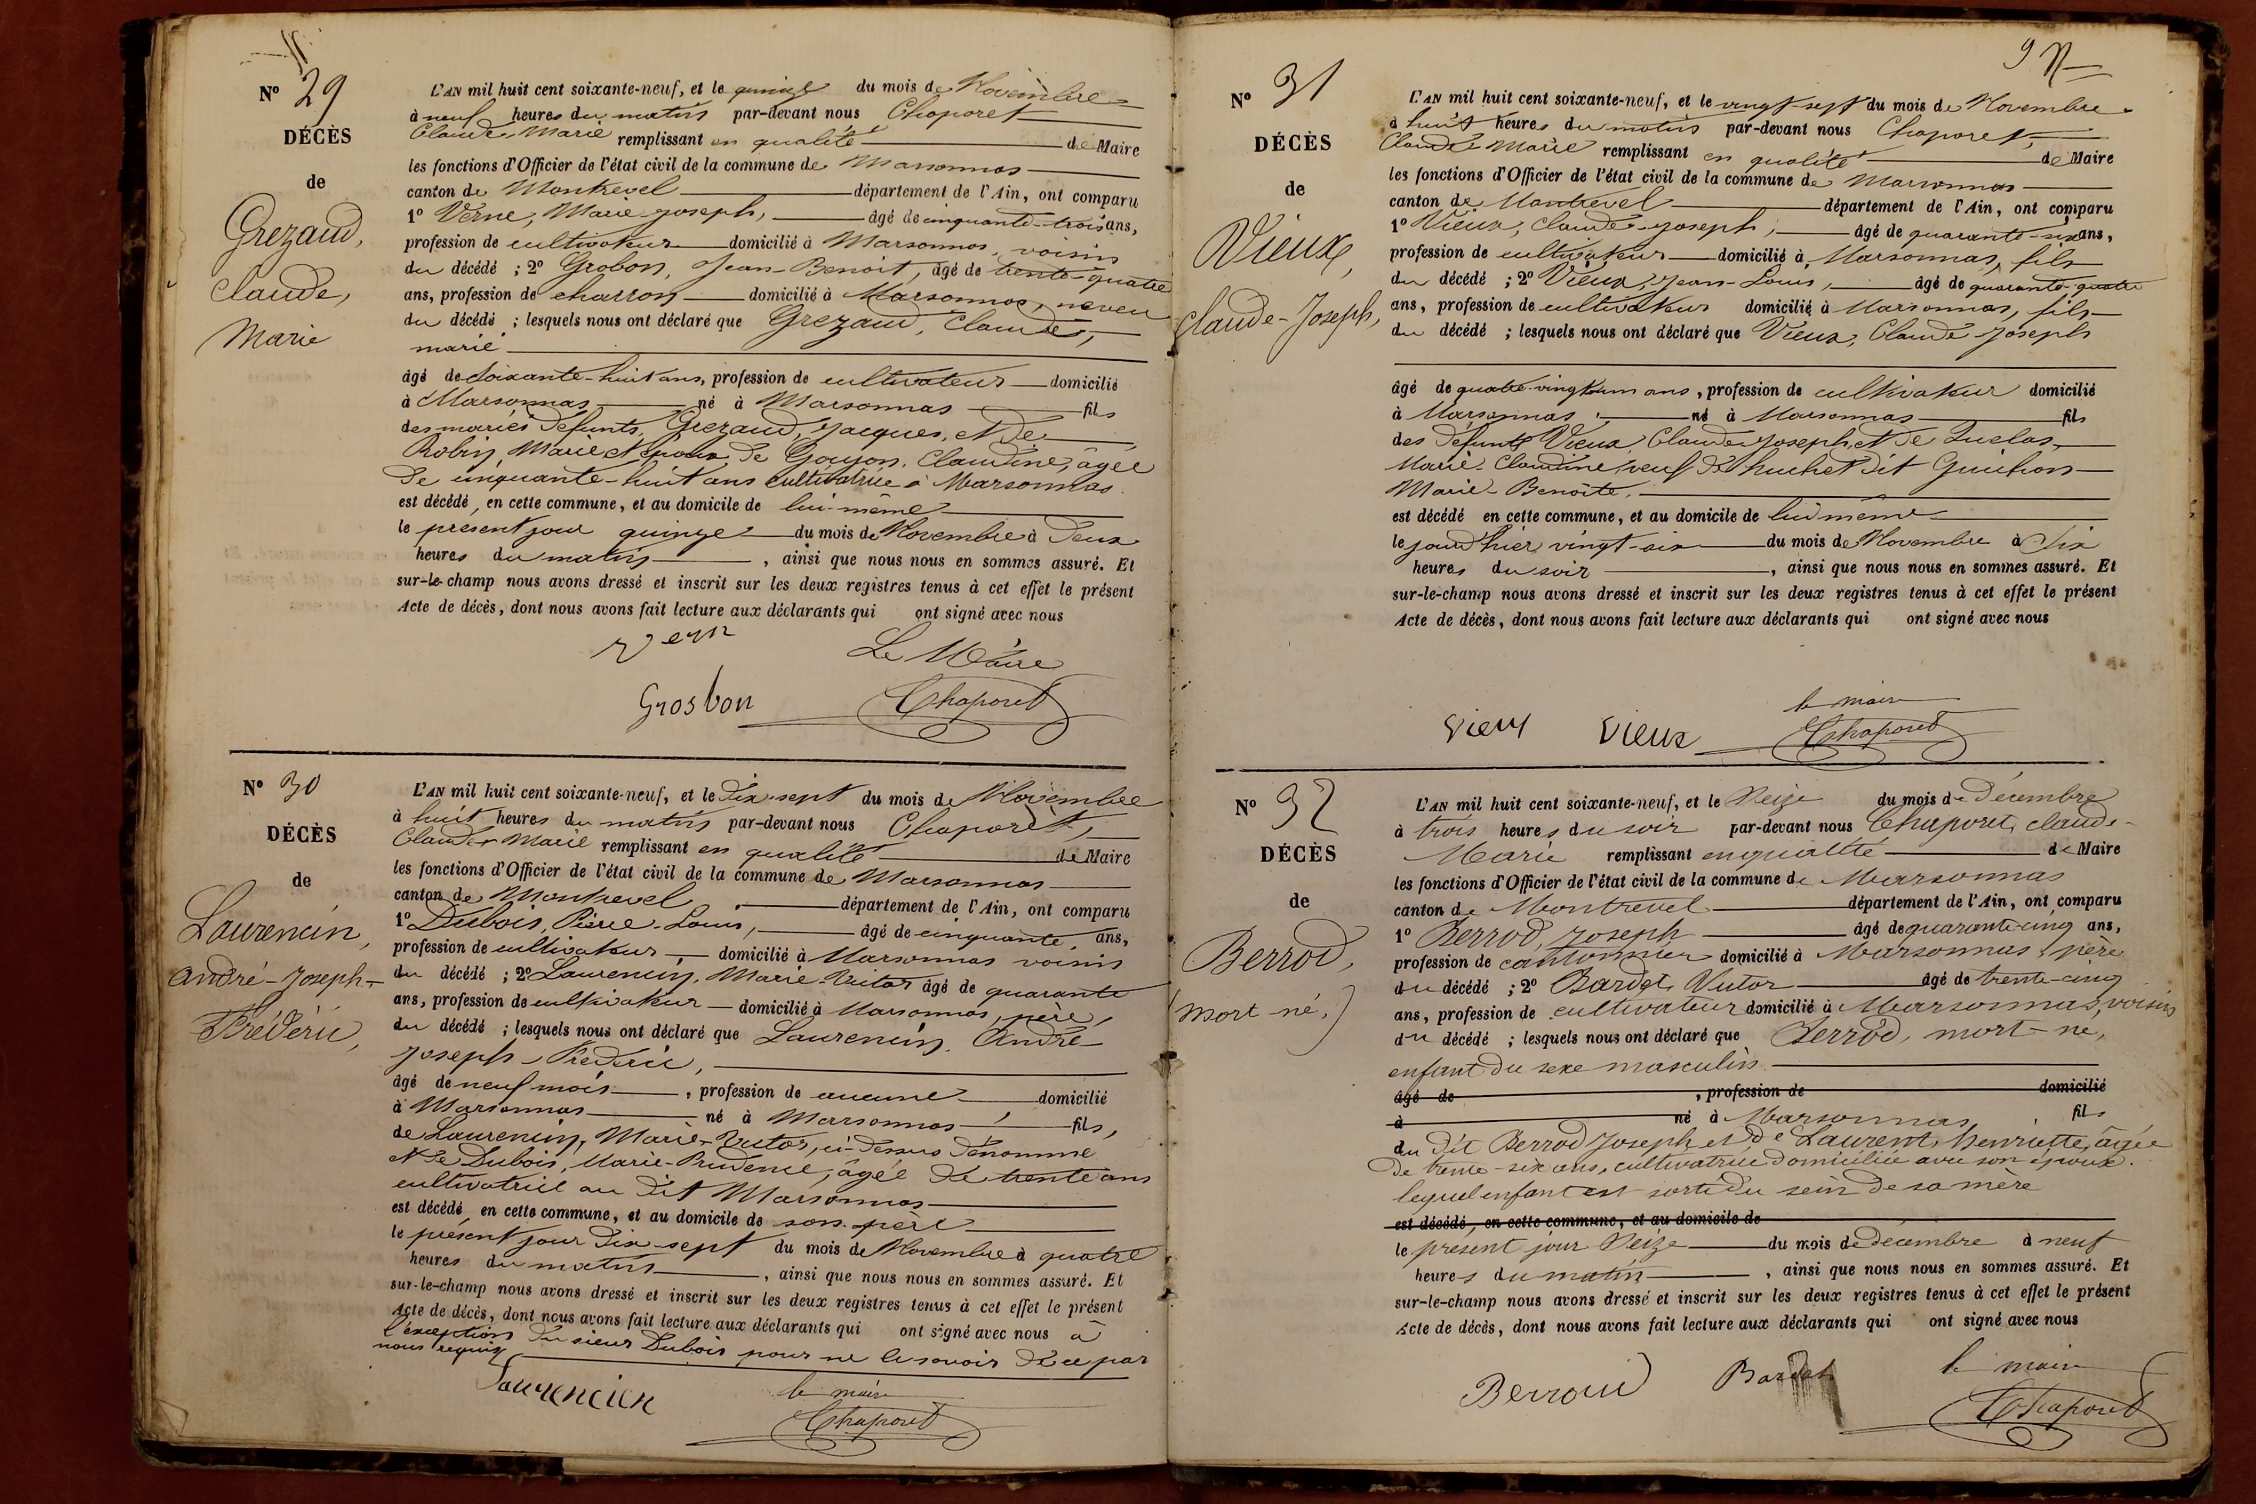 Nº 29
DÉCÈS
de
Grezaud,
Claude,
Marie
L'AN mil huit cent soixante-neuf, et le quinze du mois de Novembre
à neuf heures du matin par-devant nous Chaporet
Claude Marie remplissant en qualité de Maire
les fonctions d'Officier de l'état civil de la commune de Marsonnas
canton de Montrevel département de l'Ain, ont comparu
1º Verne, Marie Joseph, âgé de cinquante-trois ans,
profession de cultivateur domicilié à Marsonnas, voisin
du décédé ; 2º Grobon, Jean-Benoit, âgé de trente-quatre
ans, profession de charron domicilié à Marsonnas, neveu
du décédé ; lesquels nous ont déclaré que Grezaud, Claude,
marié
âgé de soixante-huit ans, profession de cultivateur domicilié
à Marsonnas né à Marsonnas fils
des mariés défunts, Grezaud, Jacques, et de
Robin, Marie et époux de Goujon, Claudine, âgée
de cinquante-huit ans cultivatrice à Marsonnas
est décédé, en cette commune, et au domicile de lui-même
le présent jour quinze du mois de Novembre à deux
heures du matin, ainsi que nous nous en sommes assuré. Et
sur-le-champ nous avons dressé et inscrit sur les deux registres tenus à cet effet le présent
Acte de décès, dont nous avons fait lecture aux déclarants qui ont signé avec nous
Vern
Le Maire
Grosbon Chaporet
Nº 30
DÉCÈS
de
Laurencin,
André-Joseph-
Frédéric,
L'AN mil huit cent soixante-neuf, et le dix-sept du mois de Novembre
à huit heures du matin par-devant nous Chaporet,
Claude Marie remplissant en qualité de Maire
les fonctions d'Officier de l'état civil de la commune de Marsonnas
canton de Montrevel département de l'Ain, ont comparu
1º Dubois, Pierre-Louis, âgé de cinquante, ans,
profession de cultivateur domicilié à Marsonnas voisin
du décédé ; 2º Laurencin, Marie-Victor âgé de quarante
ans, profession de cultivateur domicilié à Marsonnas, père,
du décédé ; lesquels nous ont déclaré que Laurencin, André
Joseph-Frédéric,
âgé de neuf mois, profession de aucune domicilié
à Marsonnas né à Marsonnas, fils,
de Laurencin, Marie-Victor, ci-dessus dénommé
et de Dubois, Marie-Prudence, âgée de trente ans
cultivatrice au dit Marsonnas
est décédé en cette commune, et au domicile de son père
le présent jour dix-sept du mois de Novembre à quatre
heures du matin, ainsi que nous nous en sommes assuré. Et
sur-le-champ nous avons dressé et inscrit sur les deux registres tenus à cet effet le présent
Acte de décès, dont nous avons fait lecture aux déclarants qui ont signé avec nous à
l'exception du sieur Dubois pour ne le savoir de ce par
nous requis
Laurencien
le maire
Chaporet
Nº 31
DÉCÈS
de
Vieux,
Claude-Joseph,
L'AN mil huit cent soixante-neuf, et le vingt-sept du mois de Novembre
à huit heures du matin par-devant nous Chaporet,
Claude-Marie remplissant en qualité de Maire
les fonctions d'Officier de l'état civil de la commune de Marsonnas
canton de Montrevel département de l'Ain, ont comparu
1º Vieux, Claude-Joseph, âgé de quarante-six ans,
profession de cultivateur domicilié à Marsonnas, fils
du décédé ; 2º Vieux, Jean-Louis, âgé de quarante-quatre
ans, profession de cultivateur domicilié à Marsonnas, fils
du décédé ; lesquels nous ont déclaré que Vieux, Claude-Joseph
âgé de quatre-vingt-un ans, profession de cultivateur domicilié
à Marsonnas, né à Marsonnas fils
des défunts Vieux, Claude-Joseph et de
Marie-Claudine, veuf de huchet dit Guichon
Marie-Benoîte,
est décédé en cette commune, et au domicile de lui même
le jourd'hier vingt-six du mois de Novembre à six
heures du soir, ainsi que nous nous en sommes assuré. Et
sur-le-champ nous avons dressé et inscrit sur les deux registres tenus à cet effet le présent
Acte de décès, dont nous avons fait lecture aux déclarants qui ont signé avec nous
le maire
Vieux Vieux Chaporet
Nº 32
DÉCÈS
de
Berrod,
(mort-né,)
L'AN mil huit cent soixante-neuf, et le seize du mois de décembre
à trois heures du soir par-devant nous Chaporet, Claude-
Marie remplissant en qualité de Maire
les fonctions d'Officier de l'état civil de la commune de Marsonnas
canton de Montrevel département de l'Ain, ont comparu
1º Berrod, Joseph âgé de quarante-cinq ans,
profession de cantonnier domicilié à Marsonnas, père
du décédé ; 2º Bardet, Victor âgé de trente-cinq
ans, profession de cultivateur domicilié à Marsonnas, voisin
du décédé ; lesquels nous ont déclaré que Berrod, mort-né,
enfant du sexe masculin
âgé de, profession de domicilié
à né à Marsonnas, fils
du dit Berrod Joseph et de Laurent, henriette, âgée
de trente-six ans, cultivatrice domiciliée avec son époux.
lequel enfant est sorti du sein de sa mère
est décédé, en cette commune, et au domicile de
le présent jour seize du mois de décembre à neuf
heures du matin, ainsi que nous nous en sommes assuré. Et
sur-le-champ nous avons dressé et inscrit sur les deux registres tenus à cet effet le présent
Acte de décès, dont nous avons fait lecture aux déclarants qui ont signé avec nous
Berroud Bardet le maire
Chaporet